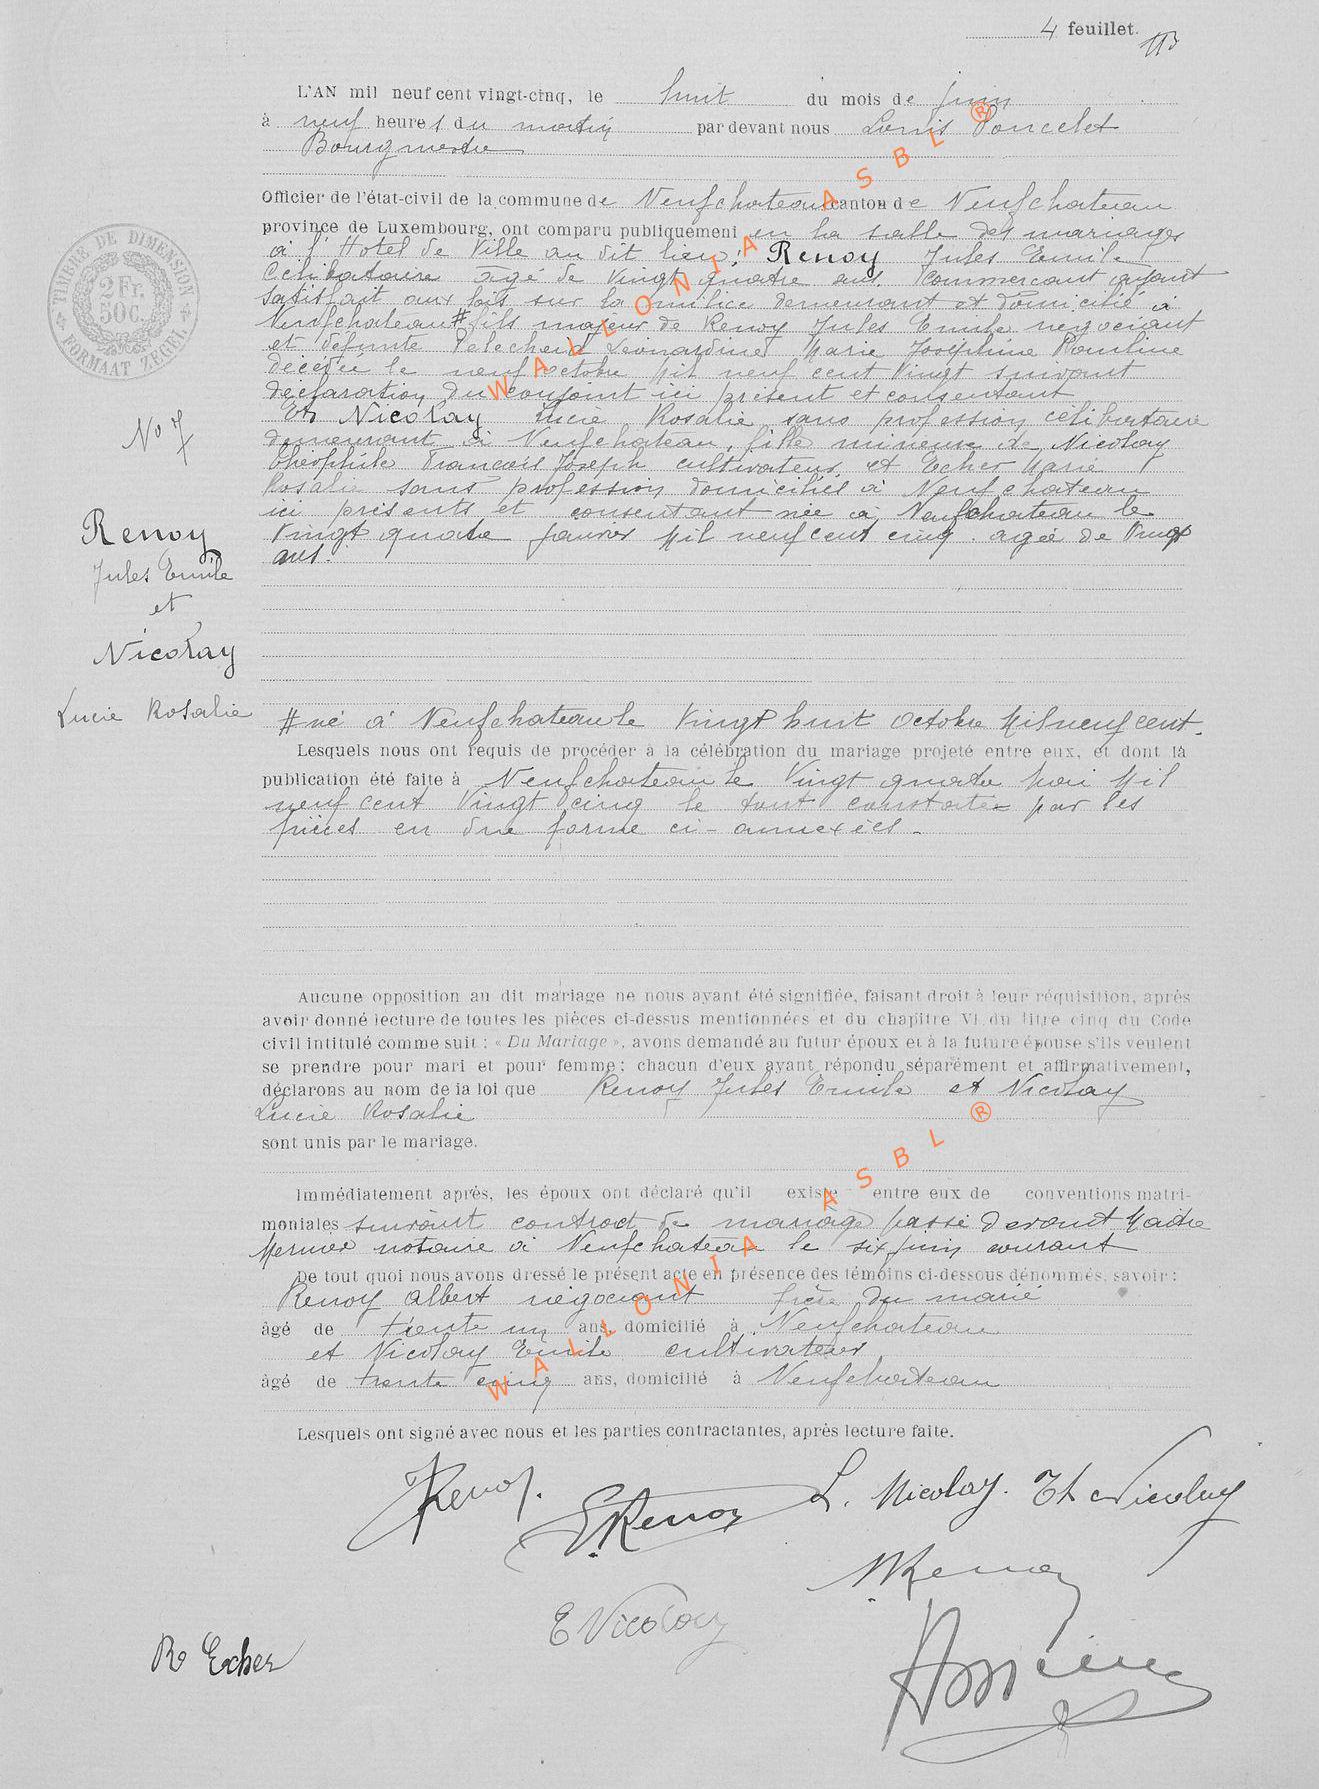 4 feuillet.
L'AN mil neuf cent vingt-cinq, le huit du mois de juin
à neuf heures du matin par devant nous Louis Poncelet
Bourgmestre
Officier de l'état-civil de la commune de Neufchateau canton de Neufchateau
province de Luxembourg, ont comparu publiquement en la salle des mariages
à l'Hotel de Ville au dit lieu: Renoy Jules Emile
Célibataire agé de Vingt quatre ans, Commercant ayant
satisfait aux lois sur la milice demeurant et domicilié à
Neufchateau # fils majeur de Renoy Jules Emile negociant
et defunte Leonardine Marie Joséphine Pauline
décédée le neuf octobre Mil neuf cent Vingt suivant
déclaration du conjoint ici présent et consentant
Et Nicolay Lucie Rosalie sans profession célibataire
demeurant à Neufchateau, fille mineure de Nicolay
Théophile Francois Joseph cultivateur et Echer Marie
Rosalie sans profession domiciliés à Neufchateau
ici présents et consentant née à Neufchateau le
Vingt quatre janvier Mil neuf cent cinq. agée de Vingt
ans.
TIMBRE DE DIMENSION
2 Fr.
50C.
FORMAAT ZEGEL
No 7
Renoy
Jules Emile
et
Nicolay
Lucie Rosalie
# né à Neufchateau le Vingt huit Octobre Mil neuf cent.
Lesquels nous ont requis de procéder à la célébration du mariage projeté entre eux, et dont la
publication été faite à Neufchateau le Vingt quatre Mai Mil
neuf cent Vingt cinq le tout constaté par les
pièces en due forme ci-annexées.
Aucune opposition au dit mariage ne nous ayant été signifiée, faisant droit à leur réquisition, après
avoir donné lecture de toutes les pièces ci-dessus mentionnées et du chapitre VI du titre cinq du Code
civil intitulé comme suit : « Du Mariage », avons demandé au futur époux et à la future épouse s'ils veulent
se prendre pour mari et pour femme ; chacun d'eux ayant répondu séparément et affirmativement,
déclarons au nom de la loi que Renoy Jules Emile et Nicolay
Lucie Rosalie
sont unis par le mariage.
Immédiatement après, les époux ont déclaré qu'il existe entre eux de conventions matri-
moniales suivant contract de mariage passé devant Maitre
Mernier notaire à Neufchateau le six juin courant
De tout quoi nous avons dressé le présent acte en présence des témoins ci-dessous dénommés, savoir :
Renoy Albert négociant frère du marié
âgé de trente un ans, domicilié à Neufchateau
et Nicolay Emile cultivateur
âgé de trente cinq ans, domicilié à Neufchateau
Lesquels ont signé avec nous et les parties contractantes, après lecture faite.
Renoy. E Renoy L. Nicolay. Th Nicolay
Renoy
E Nicolay
R Echer
WALLONIA ASBL ®
WALLONIA ASBL ®